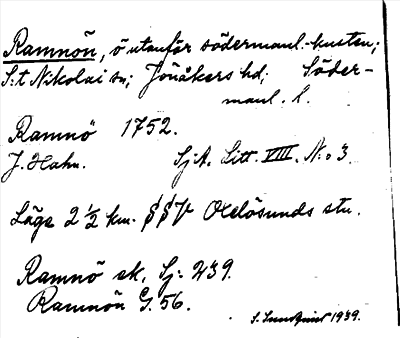 Ramnön, ö utanför södermanl.-kusten;
S:t Nikolai sn; Jönåkers hd; Söder-
manl. l.
Ramnö 1752.
J. Hahn. SjA. Litt. VIII. N:o 3.
Läge 2 1/2 km. SSV Oxelösunds stn.
Ramnö sk, Sj. 239.
Ramnön G. 56.
S. Sundqvist 1939.